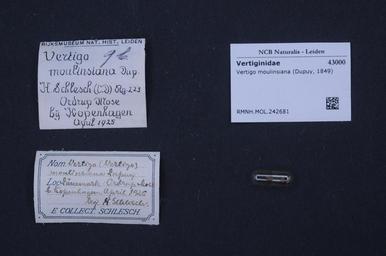 RIJKSMUSEUM NAT. HIST. LEIDEN
Vertigo
moulinsiana Dup
H. Schlesch (CD) Rg. 223
Ordrup Mose
bij Kopenhagen
April 1925
NCB Naturalis - Leiden
Vertiginidae 43000
Vertigo moulinsiana (Dupuy, 1849)
RMNH.MOL.242681
Nom. Vertigo (Vertigo)
moulinsiana Dupuy
Loc. Dänemark: Ordrup Mose
b. Kopenhagen April 1925
leg. H. Schlesch
E COLLECT. SCHLESCH